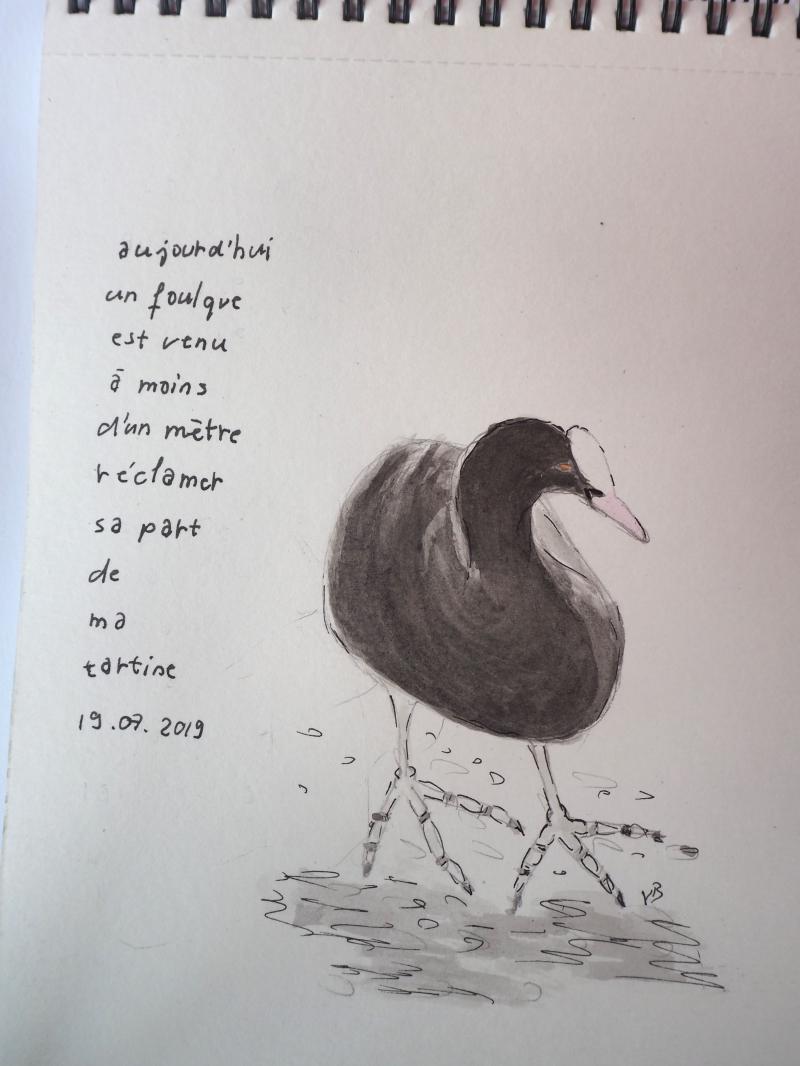 aujourd'hui
un foulque
est venu
à moins
d'un mètre
réclamer
sa part
de
ma
tartine
19.07.2019
VB